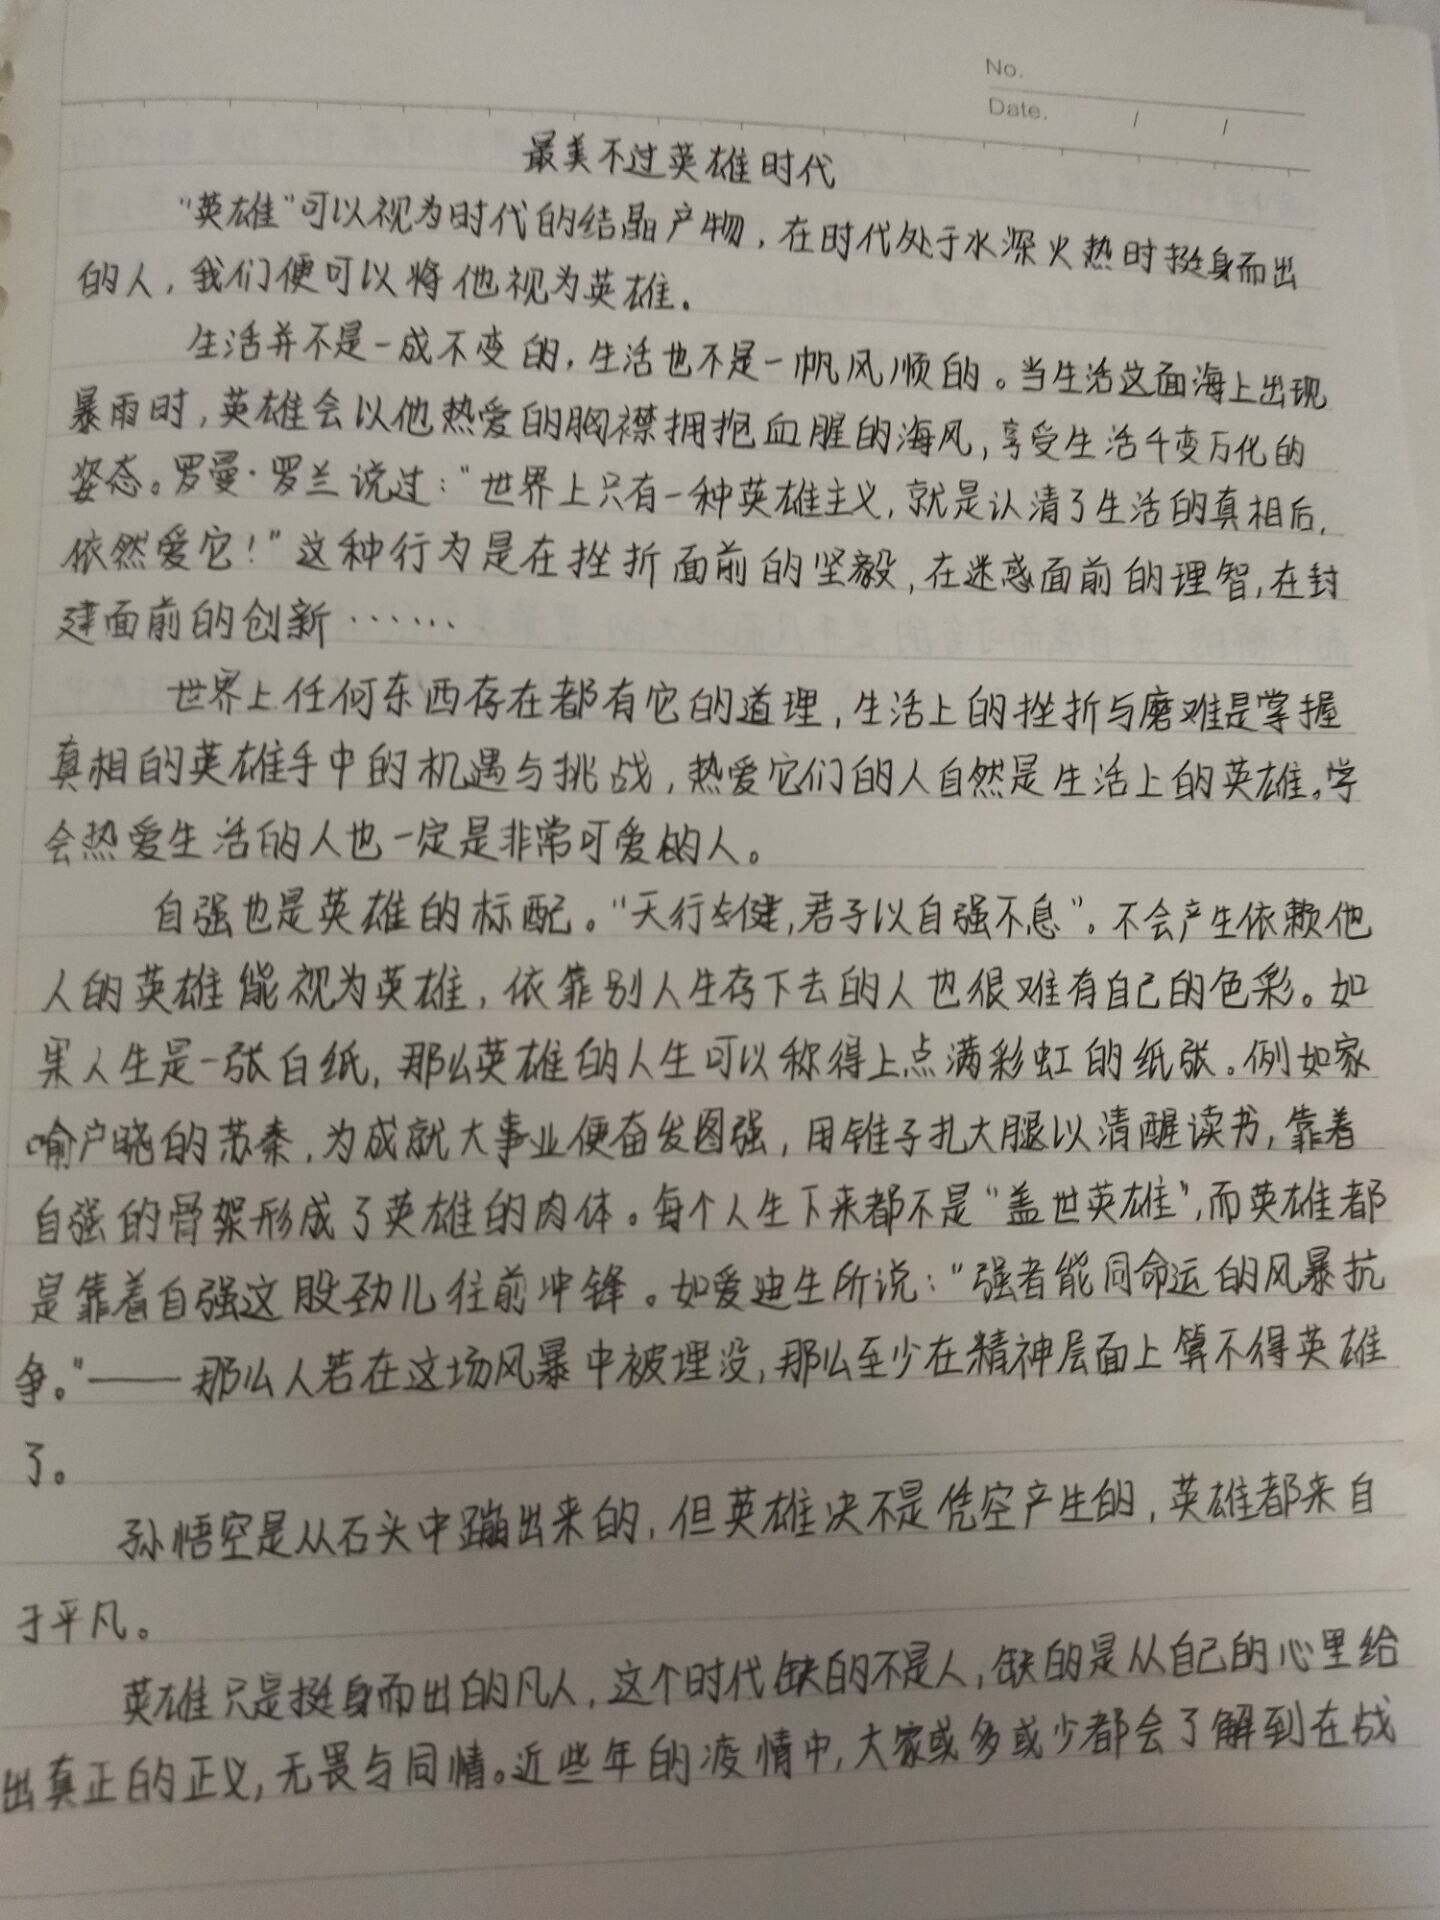 No.
Date. / /
最美不过英雄时代
“英雄”可以视为时代的结晶产物，在时代处于水深火热时挺身而出
的人，我们便可以将他视为英雄．
生活并不是一成不变的，生活也不是一帆风顺的。当生活这面海上出现
暴雨时，英雄会以他热爱的胸襟拥抱血腥的海风，享受生活千变万化的
姿态。罗曼·罗兰说过：“世界上只有一种英雄主义，就是认清了生活的真相后，
依然爱它！”这种行为是在挫折面前的坚毅，在迷惑面前的理智，在封
建面前的创新······
世界上任何东西存在都有它的道理，生活上的挫折与磨难是掌握
真相的英雄手中的机遇与挑战，热爱它们的人自然是生活上的英雄。学
会热爱生活的人也一定是非常可爱的人。
自强也是英雄的标配。“天行健，君子以自强不息”。不会产生依赖他
人的英雄能视为英雄，依靠别人生存下去的人也很难有自己的色彩。如
果人生是一张白纸，那么英雄的人生可以称得上点满彩虹的纸张。例如家
喻户晓的苏秦，为成就大事业便奋发图强，用锥子扎大腿以清醒读书，靠着
自强的骨架形成了英雄的肉体。每个人生下来都不是“盖世英雄”，而英雄都
是靠着自强这股劲儿往前冲锋。如爱迪生所说：“强者能同命运的风暴抗
争。”——那么人若在这场风暴中被埋没，那么至少在精神层面上算不得英雄
了。
孙悟空是从石头中蹦出来的，但英雄决不是凭空产生的，英雄都来自
于平凡。
英雄只是挺身而出的凡人，这个时代缺的不是人，缺的是从自己的心里给
出真正的正义，无畏与同情。近些年的疫情中，大家或多或少都会了解到在战